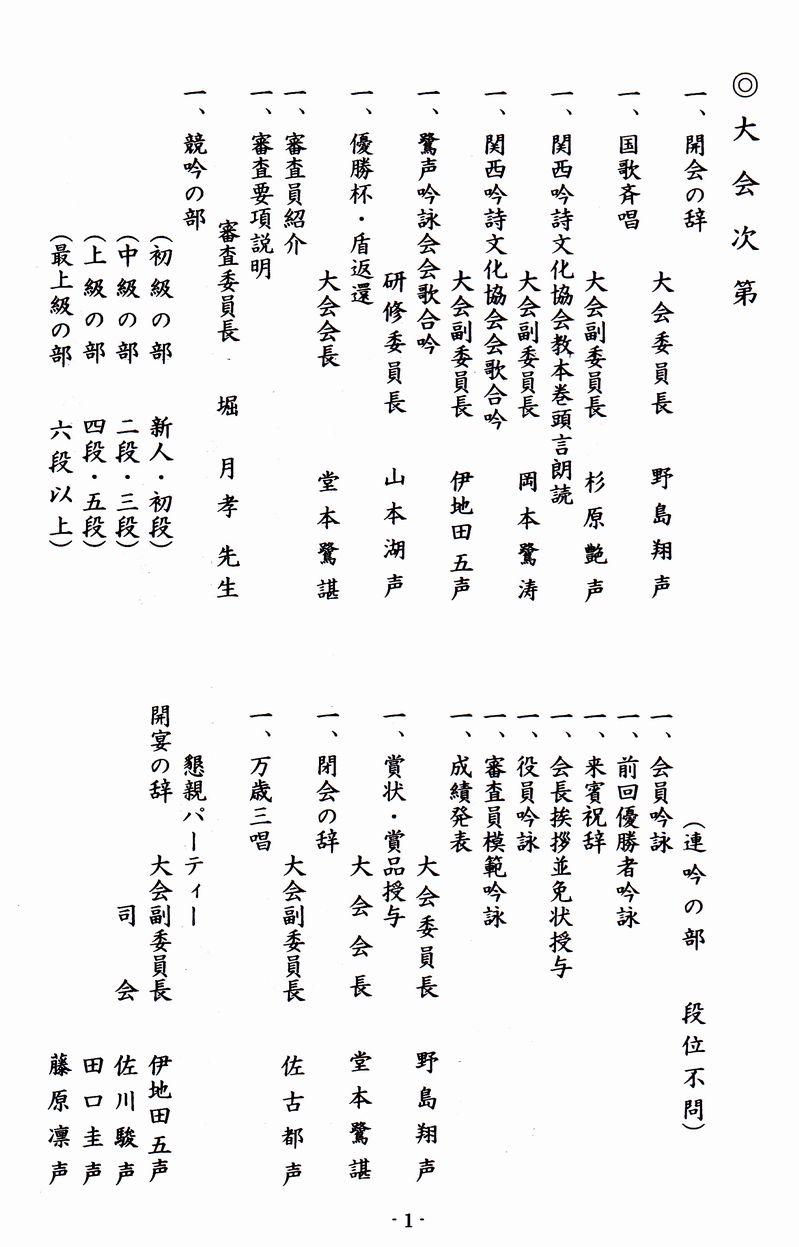 ◎大会次第
一、開会の辞
大会委員長　野島翔声
一、国歌斉唱
大会副委員長　杉原艶声
一、関西吟詩文化協会教本巻頭言朗読
大会副委員長　岡本鷺涛
一、関西吟詩文化協会会歌合吟
大会副委員長　伊地田五声
一、鷺声吟詠会会歌合吟
研修委員長　山本湖声
一、優勝杯・盾返還
大会会長　堂本鷺諶
一、審査員紹介
一、審査要項説明
審査委員長　堀月孝先生
一、競吟の部
（初級の部　新人・初段）
（中級の部　二段・三段）
（上級の部　四段・五段）
（最上級の部　六段以上）
（連吟の部　段位不問）
一、会員吟詠
一、前回優勝者吟詠
一、来賓祝辞
一、会長挨拶並免状授与
一、役員吟詠
一、審査員模範吟詠
一、成績発表
大会委員長　野島翔声
一、賞状・賞品授与
大会会長　堂本鷺諶
一、閉会の辞
大会副委員長　佐古都声
一、万歳三唱
懇親パーティー
開宴の辞　大会副委員長　伊地田五声
司会　佐川駿声
田口圭声
藤原凛声
- 1 -